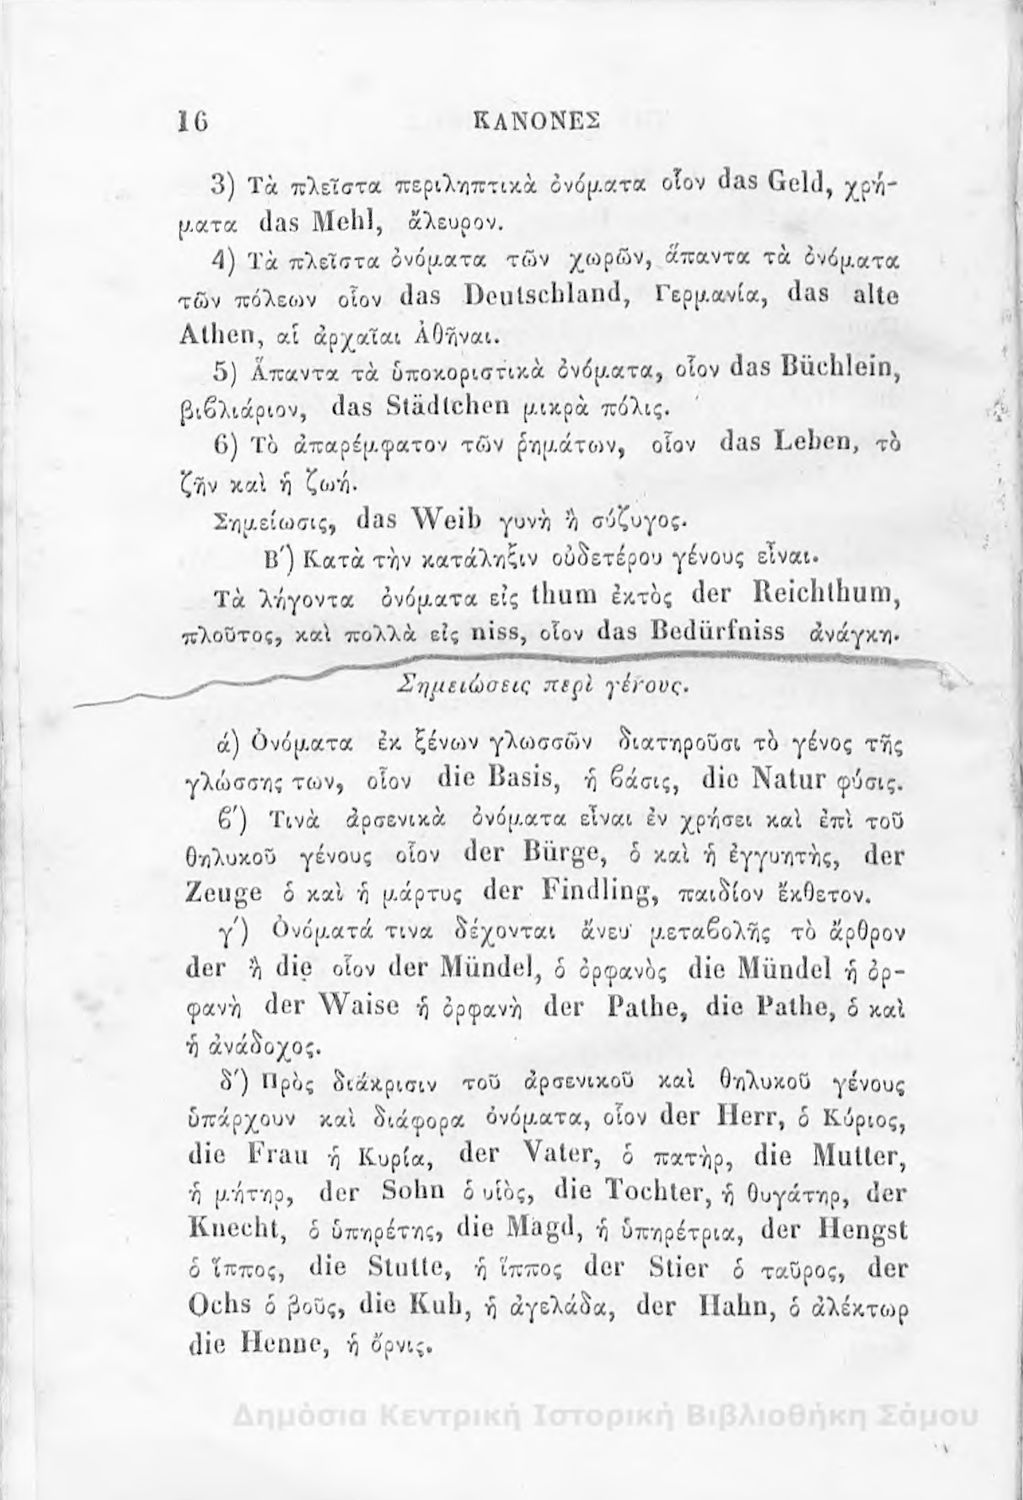 16 ΚΑΝΟΝΕΣ
3) Τὰ πλεῖστα περιληπτικὰ ὀνόματα οἷον das Geld, χρή-
ματα das Mehl, ἄλευρον.
4) Τὰ πλεῖστα ὀνόματα τῶν χωρῶν, ἅπαντα τὰ ὀνόματα
τῶν πόλεων οἷον das Deutschland, Γερμανία, das alte
Athen, αἱ ἀρχαῖαι Ἀθῆναι.
5) Ἅπαντα τὰ ὑποκοριστικὰ ὀνόματα, οἷον das Büchlein,
βιβλιάριον, das Städtchen μικρὰ πόλις.
6) Τὸ ἀπαρέμφατον τῶν ῥημάτων, οἷον das Leben, τὸ
ζῆν καὶ ἡ ζωή.
Σημείωσις, das Weib γυνὴ ἢ σύζυγος.
Β′) Κατὰ τὴν κατάληξιν οὐδετέρου γένους εἶναι.
Τὰ λήγοντα ὀνόματα εἰς thum ἐκτὸς der Reichthum,
πλοῦτος, καὶ πολλὰ εἰς niss, οἷον das Bedürfniss ἀνάγκη.
Σημειώσεις περὶ γένους.
ά) Ὀνόματα ἐκ ξένων γλωσσῶν διατηροῦσι τὸ γένος τῆς
γλώσσης των, οἷον die Basis, ἡ βάσις, die Natur φύσις.
β′) Τινὰ ἀρσενικὰ ὀνόματα εἶναι ἐν χρήσει καὶ ἐπὶ τοῦ
θηλυκοῦ γένους οἷον der Bürge, ὁ καὶ ἡ ἐγγυητὴς, der
Zeuge ὁ καὶ ἡ μάρτυς der Findling, παιδίον ἔκθετον.
γ′) Ὀνόματά τινα δέχονται ἄνευ μεταβολῆς τὸ ἄρθρον
der ἢ die οἷον der Mündel, ὁ ὀρφανὸς die Mündel ἡ ὀρ-
φανὴ der Waise ἡ ὀρφανὴ der Pathe, die Pathe, ὁ καὶ
ἡ ἀνάδοχος.
δ′) Πρὸς διάκρισιν τοῦ ἀρσενικοῦ καὶ θηλυκοῦ γένους
ὑπάρχουν καὶ διάφορα ὀνόματα, οἷον der Herr, ὁ Κύριος,
die Frau ἡ Κυρία, der Vater, ὁ πατὴρ, die Mutter,
ἡ μήτηρ, der Sohn ὁ υἱὸς, die Tochter, ἡ θυγάτηρ, der
Knecht, ὁ ὑπηρέτης, die Magd, ἡ ὑπηρέτρια, der Hengst
ὁ ἵππος, die Stutte, ἡ ἵππος der Stier ὁ ταῦρος, der
Ochs ὁ βοῦς, die Kuh, ἡ ἀγελάδα, der Hahn, ὁ ἀλέκτωρ
die Henne, ἡ ὄρνις.
Δημόσια Κεντρική Ιστορική Βιβλιοθήκη Σάμου